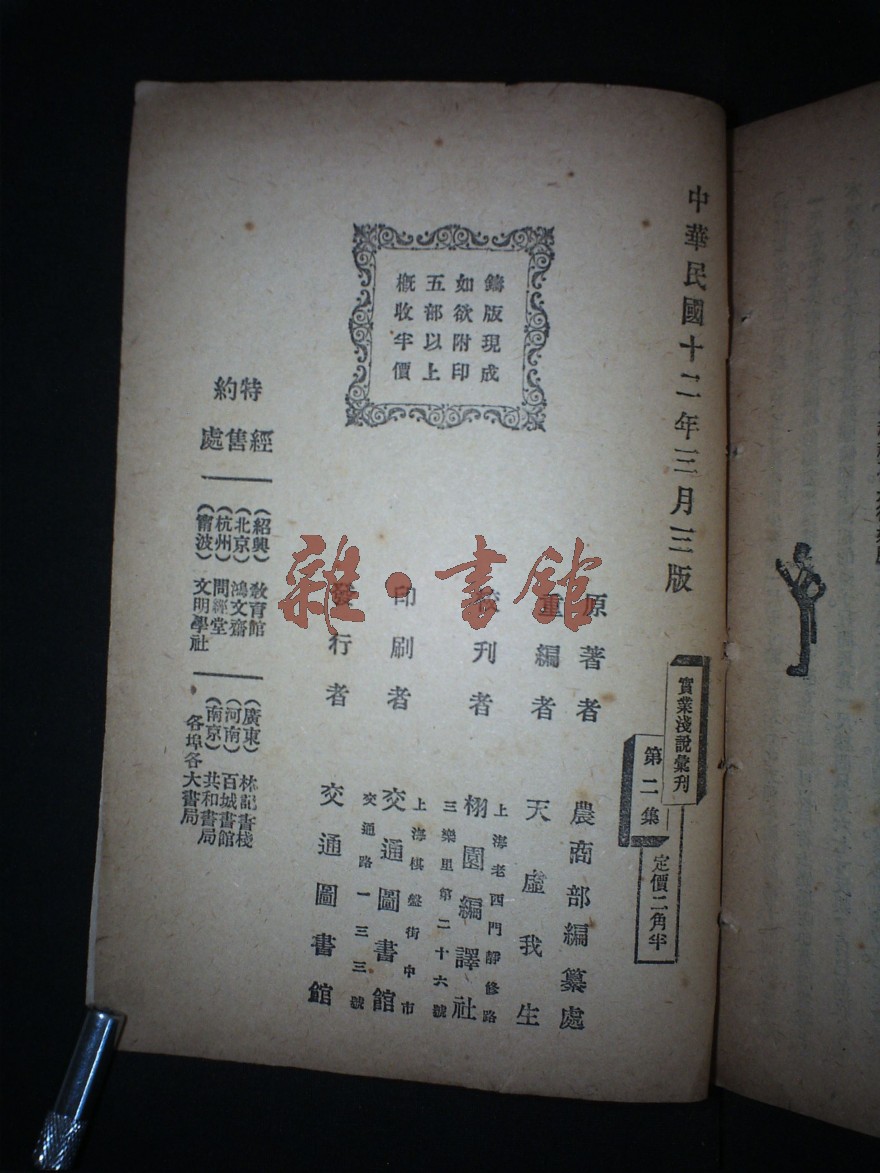 中華民國十二年三月三版
實業淺說彙刊
第二集
定價二角半
鑄版現成
如欲附印
五部以上
概收半價
原著者 農商部編纂處
重編者 天虛我生
校刊者 栩園編譯社
上海老西門靜修路
三樂里第二十六號
印刷者 交通圖書館
上海棋盤街中市
交通路一三三號
發行者 交通圖書館
特約
經售處
（紹興）教育館
（北京）鴻文齋
（杭州）問經堂
（甯波）文明學社
（廣東）林記書棧
（河南）百城書館
（南京）共和書局
各埠各大書局
雜·書館